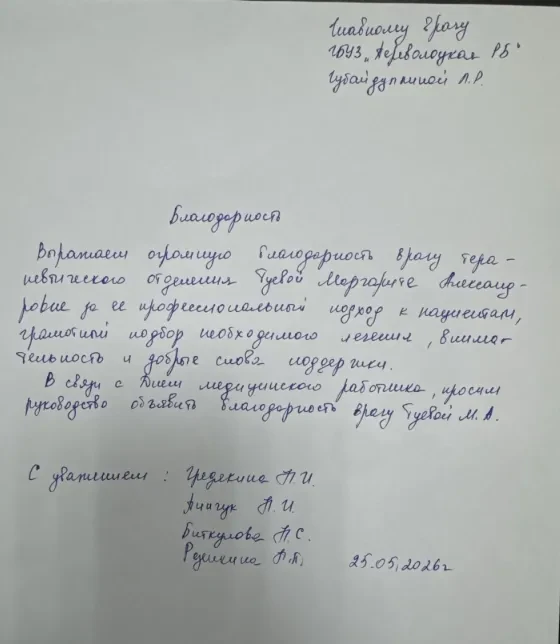 Главному врачу
ГБУЗ „Переволоцкая РБ"
Губайдуллиной Л.Р.
Благодарность
Выражаем огромную благодарность врачу тера-
певтического отделения Гуевой Маргарите Александ-
ровне за ее профессиональный подход к пациентам,
грамотный подбор необходимого лечения, внима-
тельность и добрые слова поддержки.
В связи с Днем медицинского работника, просим
руководство объявить благодарность врачу Гуевой М.А.
С уважением: Гредекина Н.И.
Н.И
Биткулова Н.С.
25.05.2026г